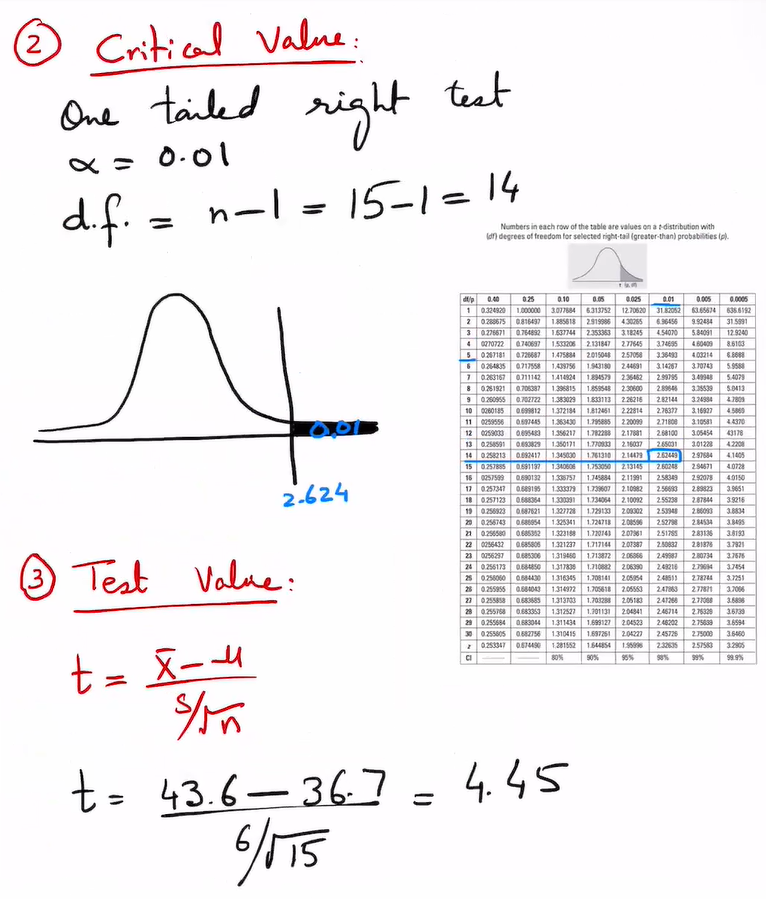 ② Critical Value:
One tailed right test
α = 0.01
d.f. = n-1 = 15-1 = 14
Numbers in each row of the table are values on a t-distribution with
(df) degrees of freedom for selected right-tail (greater-than) probabilities (p).
t (p, df)
df/p 0.40 0.25 0.10 0.05 0.025 0.01 0.005 0.0005
1 0.324920 1.000000 3.077684 6.313752 12.70620 31.82052 63.65674 636.6192
2 0.288675 0.816497 1.885618 2.919986 4.30265 6.96456 9.92484 31.5991
3 0.276671 0.764892 1.637744 2.353363 3.18245 4.54070 5.84091 12.9240
4 0270722 0.740697 1.533206 2.131847 2.77645 3.74695 4.60409 8.6103
5 0.267181 0.726687 1.475884 2.015048 2.57058 3.36493 4.03214 6.8688
6 0.264835 0.717558 1.439756 1.943180 2.44691 3.14267 3.70743 5.9588
7 0.263167 0.711142 1.414924 1.894579 2.36462 2.99795 3.49948 5.4079
8 0.261921 0.706387 1.396815 1.859548 2.30600 2.89646 3.35539 5.0413
9 0.260955 0.702722 1.383029 1.833113 2.26216 2.82144 3.24984 4.7809
10 0260185 0.699812 1.372184 1.812461 2.22814 2.76377 3.16927 4.5869
11 0259556 0.697445 1.363430 1.795885 2.20099 2.71808 3.10581 4.4370
12 0259033 0.695483 1.356217 1.782288 2.17881 2.68100 3.05454 43178
13 0.258591 0.693829 1.350171 1.770933 2.16037 2.65031 3.01228 4.2208
14 0.258213 0.692417 1.345030 1.761310 2.14479 2.62449 2.97684 4.1405
15 0.257885 0.691197 1.340606 1.753050 2.13145 2.60248 2.94671 4.0728
16 0257599 0.690132 1.336757 1.745884 2.11991 2.58349 2.92078 4.0150
17 0.257347 0.689195 1.333379 1.739607 2.10982 2.56693 2.89823 3.9651
18 0.257123 0.688364 1.330391 1.734064 2.10092 2.55238 2.87844 3.9216
19 0.256923 0.687621 1.327728 1.729133 2.09302 2.53948 2.86093 3.8834
20 0.256743 0.686954 1.325341 1.724718 2.08596 2.52798 2.84534 3.8495
21 0.256580 0.686352 1.323188 1.720743 2.07961 2.51765 2.83136 3.8193
22 0256432 0.685805 1.321237 1.717144 2.07387 2.50832 2.81876 3.7921
23 0256297 0.685306 1.319460 1.713872 2.06866 2.49987 2.80734 3.7676
24 0.256173 0.684850 1.317836 1.710882 2.06390 2.49216 2.79694 3.7454
25 0.256060 0.684430 1.316345 1.708141 2.05954 2.48511 2.78744 3.7251
26 0.255955 0.684043 1.314972 1.705618 2.05553 2.47863 2.77871 3.7066
27 0.255858 0.683685 1.313703 1.703288 2.05183 2.47266 2.77068 3.6896
28 0.255768 0.683353 1.312527 1.701131 2.04841 2.46714 2.76326 3.6739
29 0.255684 0.683044 1.311434 1.699127 2.04523 2.46202 2.75639 3.6594
30 0.255605 0.682756 1.310415 1.697261 2.04227 2.45726 2.75000 3.6460
z 0.253347 0.674490 1.281552 1.644854 1.95996 2.32635 2.57583 3.2905
CI 80% 90% 95% 98% 99% 99.9%
0.01
2.624
③ Test Value:
t = x̄-μ
s/√n
t = 43.6 - 36.7 = 4.45
6/√15